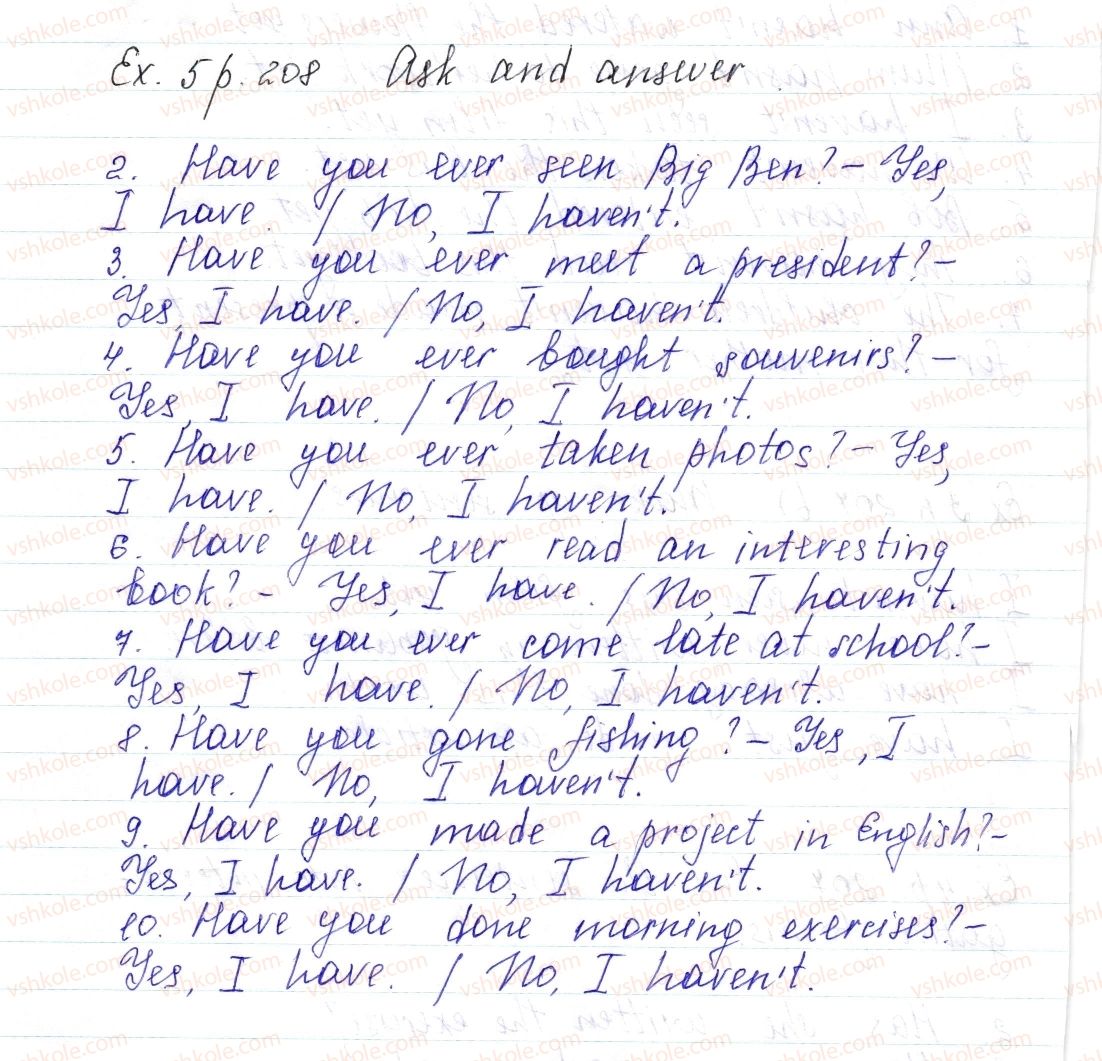 Ex. 5 p. 208 Ask and answer
2. Have you ever seen Big Ben? - Yes,
I have. / No, I haven't.
3. Have you ever meet a president? -
Yes, I have. / No, I haven't.
4. Have you ever bought souvenirs? -
Yes, I have. / No, I haven't.
5. Have you ever taken photos? - Yes,
I have. / No, I haven't.
6. Have you ever read an interesting
book? - Yes, I have. / No, I haven't.
7. Have you ever come late at school? -
Yes, I have. / No, I haven't.
8. Have you gone fishing? - Yes, I
have. / No, I haven't.
9. Have you made a project in English? -
Yes, I have. / No, I haven't.
10. Have you done morning exercises? -
Yes, I have. / No, I haven't.
vshkole.com